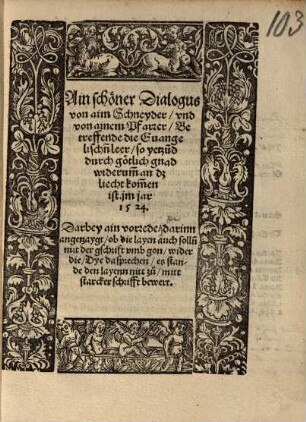 103
Ain schöner Dialogus
von aim Schneyder / vnd
von ainem Pfarrer / Be
treffende die Euange
lischñ leer / so yetzūd
durch götlich gnad
widerum̄ an dz
liecht kom̄en
ist. jm jar
1524.
Darbey ain vorrede / darinn
angetzaygt / ob die layen auch sollñ
mit der gschrift vmb gon / wider
die / Dye da sprechen / es stan-
de den layenn nit zů / mitt
starcker schrifft bewert.